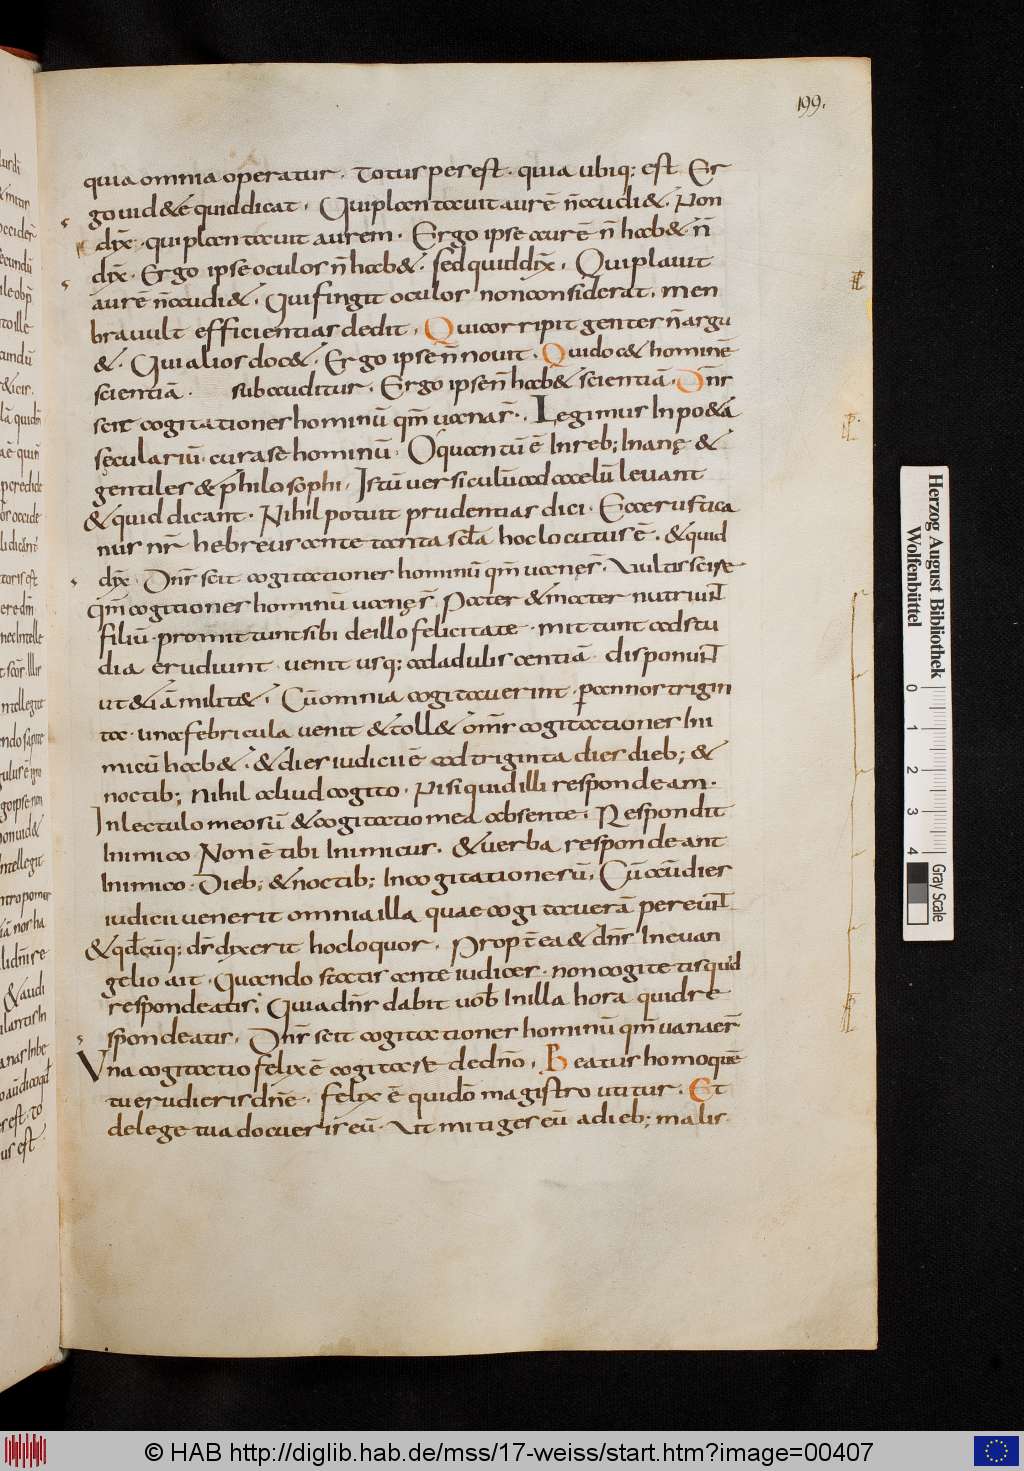 199.
quia omnia operatur. Totus per est. quia ubiq; est Er
go uid&e quid dicat. Qui plantauit aurē ñ audi&. Non
dix̄. qui plantauit aurem. Ergo ipse aurē ñ hab& ñ
dix̄. Ergo ipse oculos ñ hab&. sed quid dix̄. Qui plauit
aurē ñ audi&. Qui fingit oculos non considerat. mem
bra uult efficientias dedit. Qui corripit gentes ñ argu
&. Qui alios doc&. Ergo ipse ñ nouit. Qui doc& hominē
scientiā. subauditur. Ergo ipse ñ hab& scientiā. Dn̄s
scit cogitationes hominū qm̄ uanas̄. Legimus In po&a
sęculariū. curas hominū. O quantū ē In reb; Inanę &
gentiles & philosophi. Istū uersiculū ad cęlū leuant
& quid dicant. Nihil potuit prudentias dici. Ecce rustica
nus nr̄ hebreus ante tanta scła hoc locutus ē. & quid
dix̄. Dn̄s scit cogitationes hominū qm̄ uanęs. Vultis scire
qm̄ cogitiones hominū uanęs̄. Pater & mater nutriunt
filiū. promittunt sibi de illo felicitate. mittunt ad stu
dia erudiunt. uenit usq; ad adulis centiā. disponunt
ut &iā milit&. Cū omnia cogitauerint. p annos trigin
ta. una febricula uenit & toll& om̄s cogitationes Ini
micū hab&. & dies iudicii ē ad triginta dies dieb; &
noctib; nihil aliud cogito. Nisi quid illi respondeam.
In lectulo meo sū & cogitatio mea absente. Respondit
Inimico Non ē tibi Inimicus. & uerba respondeant
Inimico. Dieb; & noctib; In cogitatione sū. Cū aū dies
iudicii uenerit omnia illa quae cogitauerā pereunt.
& qđcūq; ds̄ dixerit hoc loquor. Propt̄ea & dn̄s In euan
gelio ait. Quando statis ante iudices. non cogitetis quid
respondeatis. Quia dn̄s dabit uob̄ In illa hora quid re
spondeatis. Dn̄s scit cogitationes hominū qm̄ uanae s̄
Vna cogitatio felix ē cogitare de dn̄o. Beatus homo quē
tu erudieris dn̄e. felix ē quidō magistro utitur. Et
de lege tua docueris eū. Vt mitiges eū a dieb; malis.
Herzog August Bibliothek
Wolfenbüttel
0 1 2 3 4
Gray Scale
© HAB http://diglib.hab.de/mss/17-weiss/start.htm?image=00407